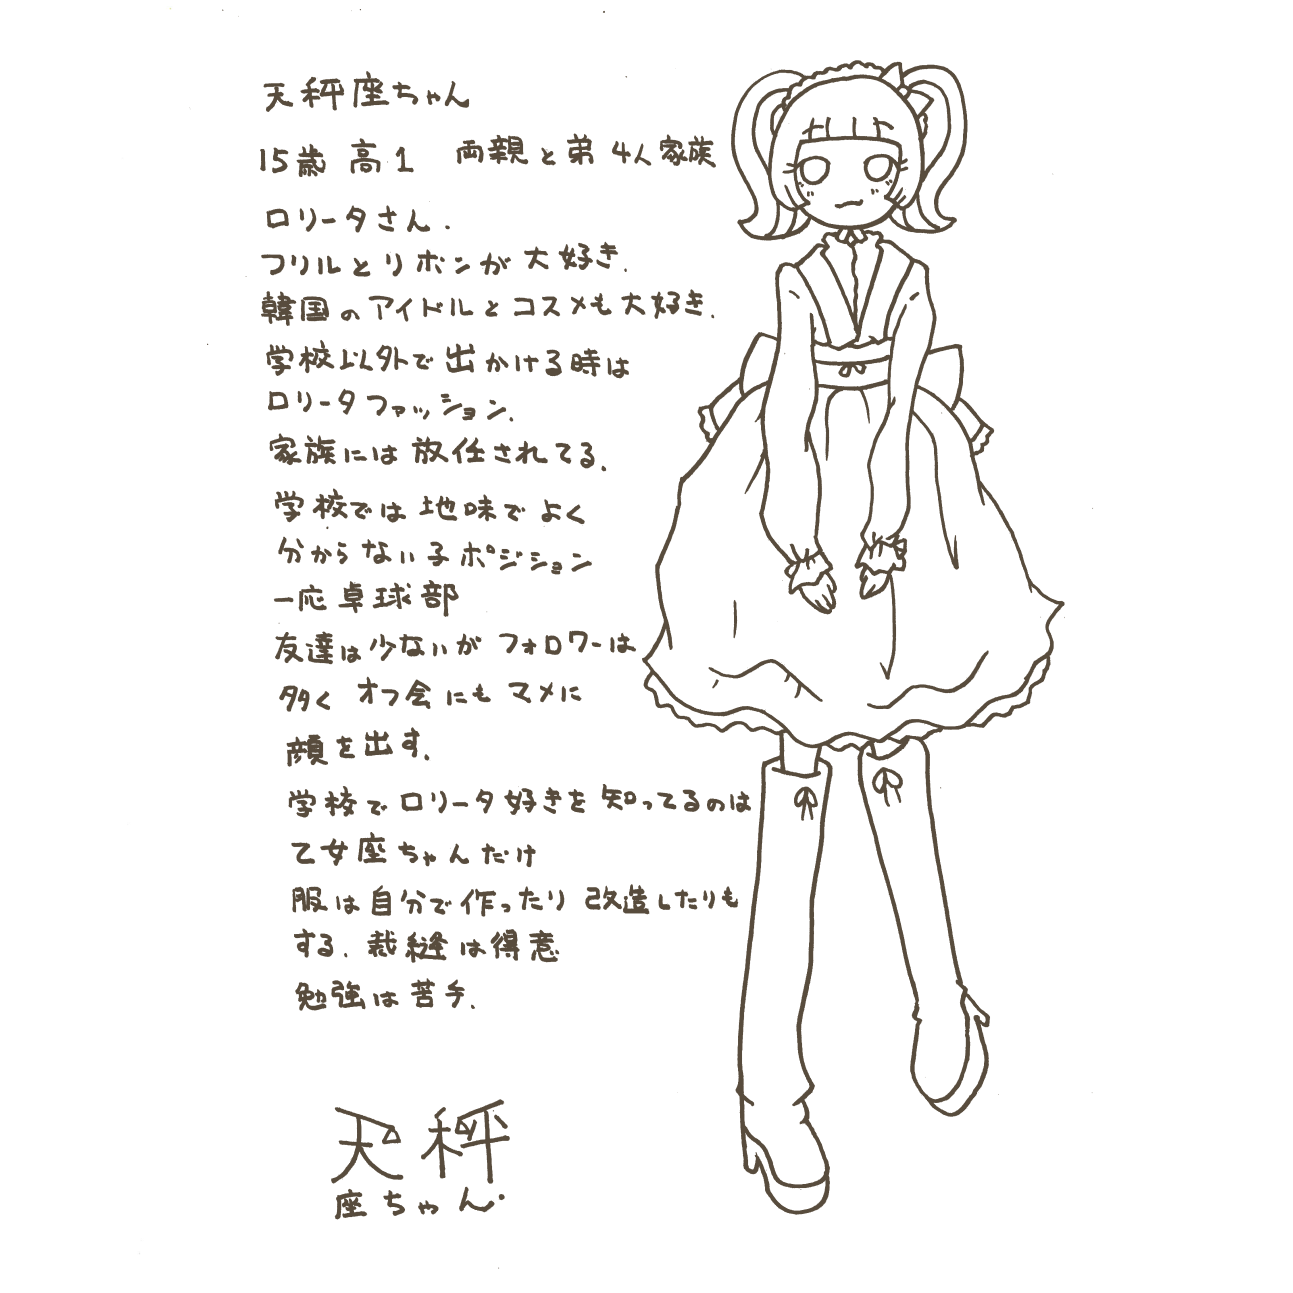 天秤座ちゃん
15歳 高1 両親と弟 4人家族
ロリータさん.
フリルとリボンが大好き.
韓国のアイドルとコスメも大好き.
学校以外で出かける時は
ロリータファッション.
家族には放任されてる.
学校では地味でよく
分からない子ポジション
一応卓球部
友達は少ないがフォロワーは
多く オフ会にもマメに
顔を出す.
学校でロリータ好きを知ってるのは
乙女座ちゃんだけ
服は自分で作ったり 改造したりも
する. 裁縫は得意
勉強は苦手.
天秤
座ちゃん.